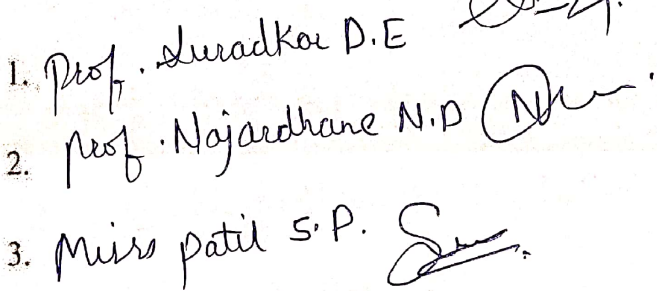 1. Prof. Suradkar D.E
2. Prof. Najardhane N.D
3. Miss Patil S.P.